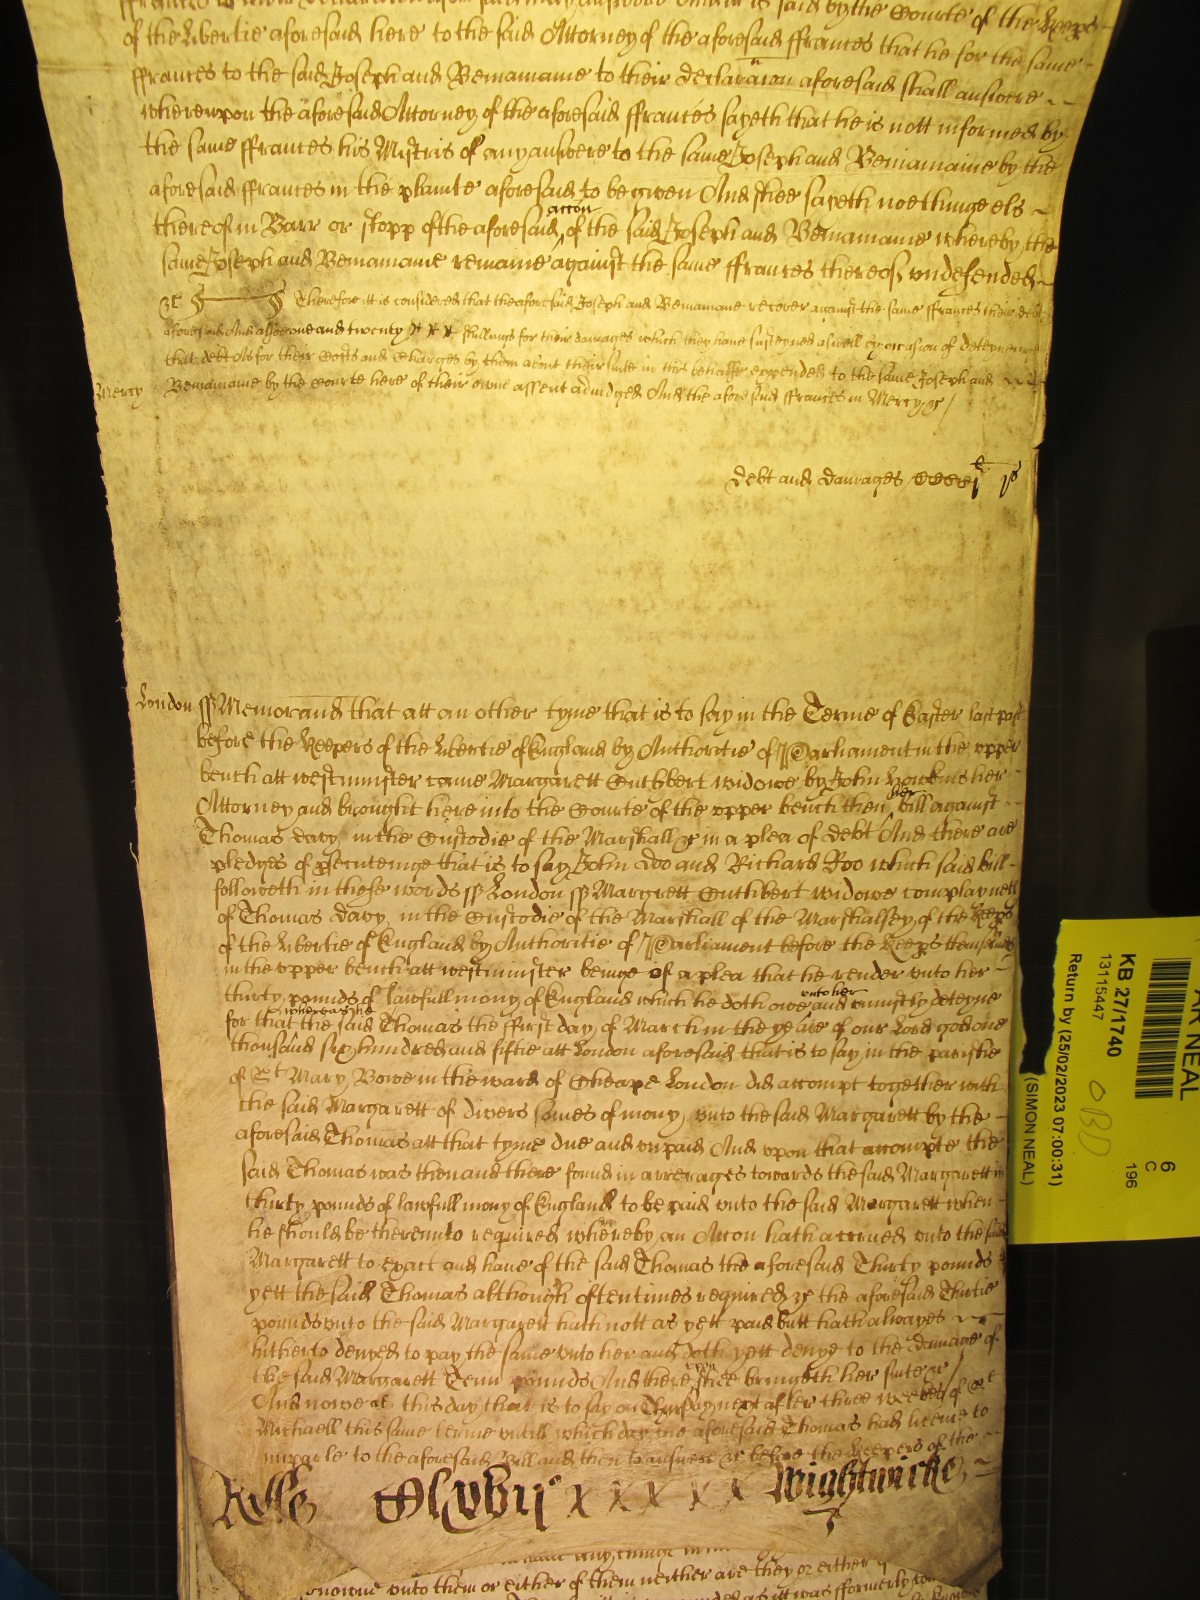 of the libertie aforesaid here to the said Attorney of the aforesaid ffrances that he for the same
ffrances to the said Joseph and Beniamine to their declaracion aforesaid shall answere
whereupon the aforesaid Attorney of the aforesaid ffrances sayeth that he is nott informed by
the same ffrances his Mistris of any answere to the same Joseph and Beniamine by the
aforesaid ffrances in the plainte aforesaid to be given And shee sayeth noethinge els
thereof in Barr or stopp of the aforesaid accon of the said Joseph and Beniamine whereby the
same Joseph and Beniamine remaine against the same ffrances thereof undefended
&c Therefore it is considered that the aforesaid Joseph and Beniamine recover against the same ffrances their debt
aforesaid And alsoe one and twenty shillings for their damages which they have susteyned aswell by occasion of deteyneing
that debt As for their Costs and Charges by them about their suite in this behalfe expended to the same Joseph and
Mercy Beniamine by the Courte here of their owne assent adiudged And the aforesaid ffrances in Mercy &c
debt and damages
London ss Memorand that att an other tyme that is to say in the Terme of Easter last past
before the Keepers of the libertie of England by Authoritie of Parliament in the upper
bench att westminster came Margarett Cuthbert widowe by John Hawkins her
Attorney and brought here into the Courte of the upper bench then her bill against
Thomas davy in the Custodie of the Marshall &c in a plea of debt And there are
pledges of prsecuteinge that is to say John Doo and Richard Roo which said bill
followeth in these words ss London ss Margrett Cuthbert widowe complayneth
of Thomas davy in the Custodie of the Marshall of the Marshalsey of the Keeps
of the libertie of England by Authoritie of Parliament before the Keeps themselves
in the upper bench att westminster beinge of a plea that he render unto her
thirty pounds of lawfull mony of England which he doth owe unto her and uniustly deteyne
for that whereas the the said Thomas the ffirst day of March in the yeare of our Lord god one
thousand six hundred and fiftie att London aforesaid that is to say in the parishe
of St Mary Bowe in the ward of Cheape London did accompt together with
the said Margarett of divers somes of mony unto the said Margarett by the
aforesaid Thomas att that tyme due and unpaid And upon that accompte the
said Thomas was then and there found in arrerages towards the said Margarett in
thirty pounds of lawfull mony of England to be paid unto the said Margarett when
he should be thereunto required whereby an Accon hath accrued unto the said
Margarett to exact and have of the said Thomas the aforesaid Thirty pounds
yett the said Thomas although oftentimes required &c the aforesaid Thirtie
pounds unto the said Margarett hath nott as yett paid butt hath alwayes
hitherto denyed to pay the same unto her and doth yett denye to the damage of
the said Margarett Tenn pounds And thereupon shee bringeth her suite &c
And nowe at this day that is to say on Thursday next after three weekes of St
Michaell this same terme untill which day the aforesaid Thomas had licence to
imparle to the aforesaid Bill and then to answere &c before the Keepers of the
Rolls Wightwicke
unto them or either of them neither are they or either
as itt was fformerly
KB 27/1740
13115447
Return by (25/02/2023 07:00:31)
(SIMON NEAL)
6
C
196
OBD